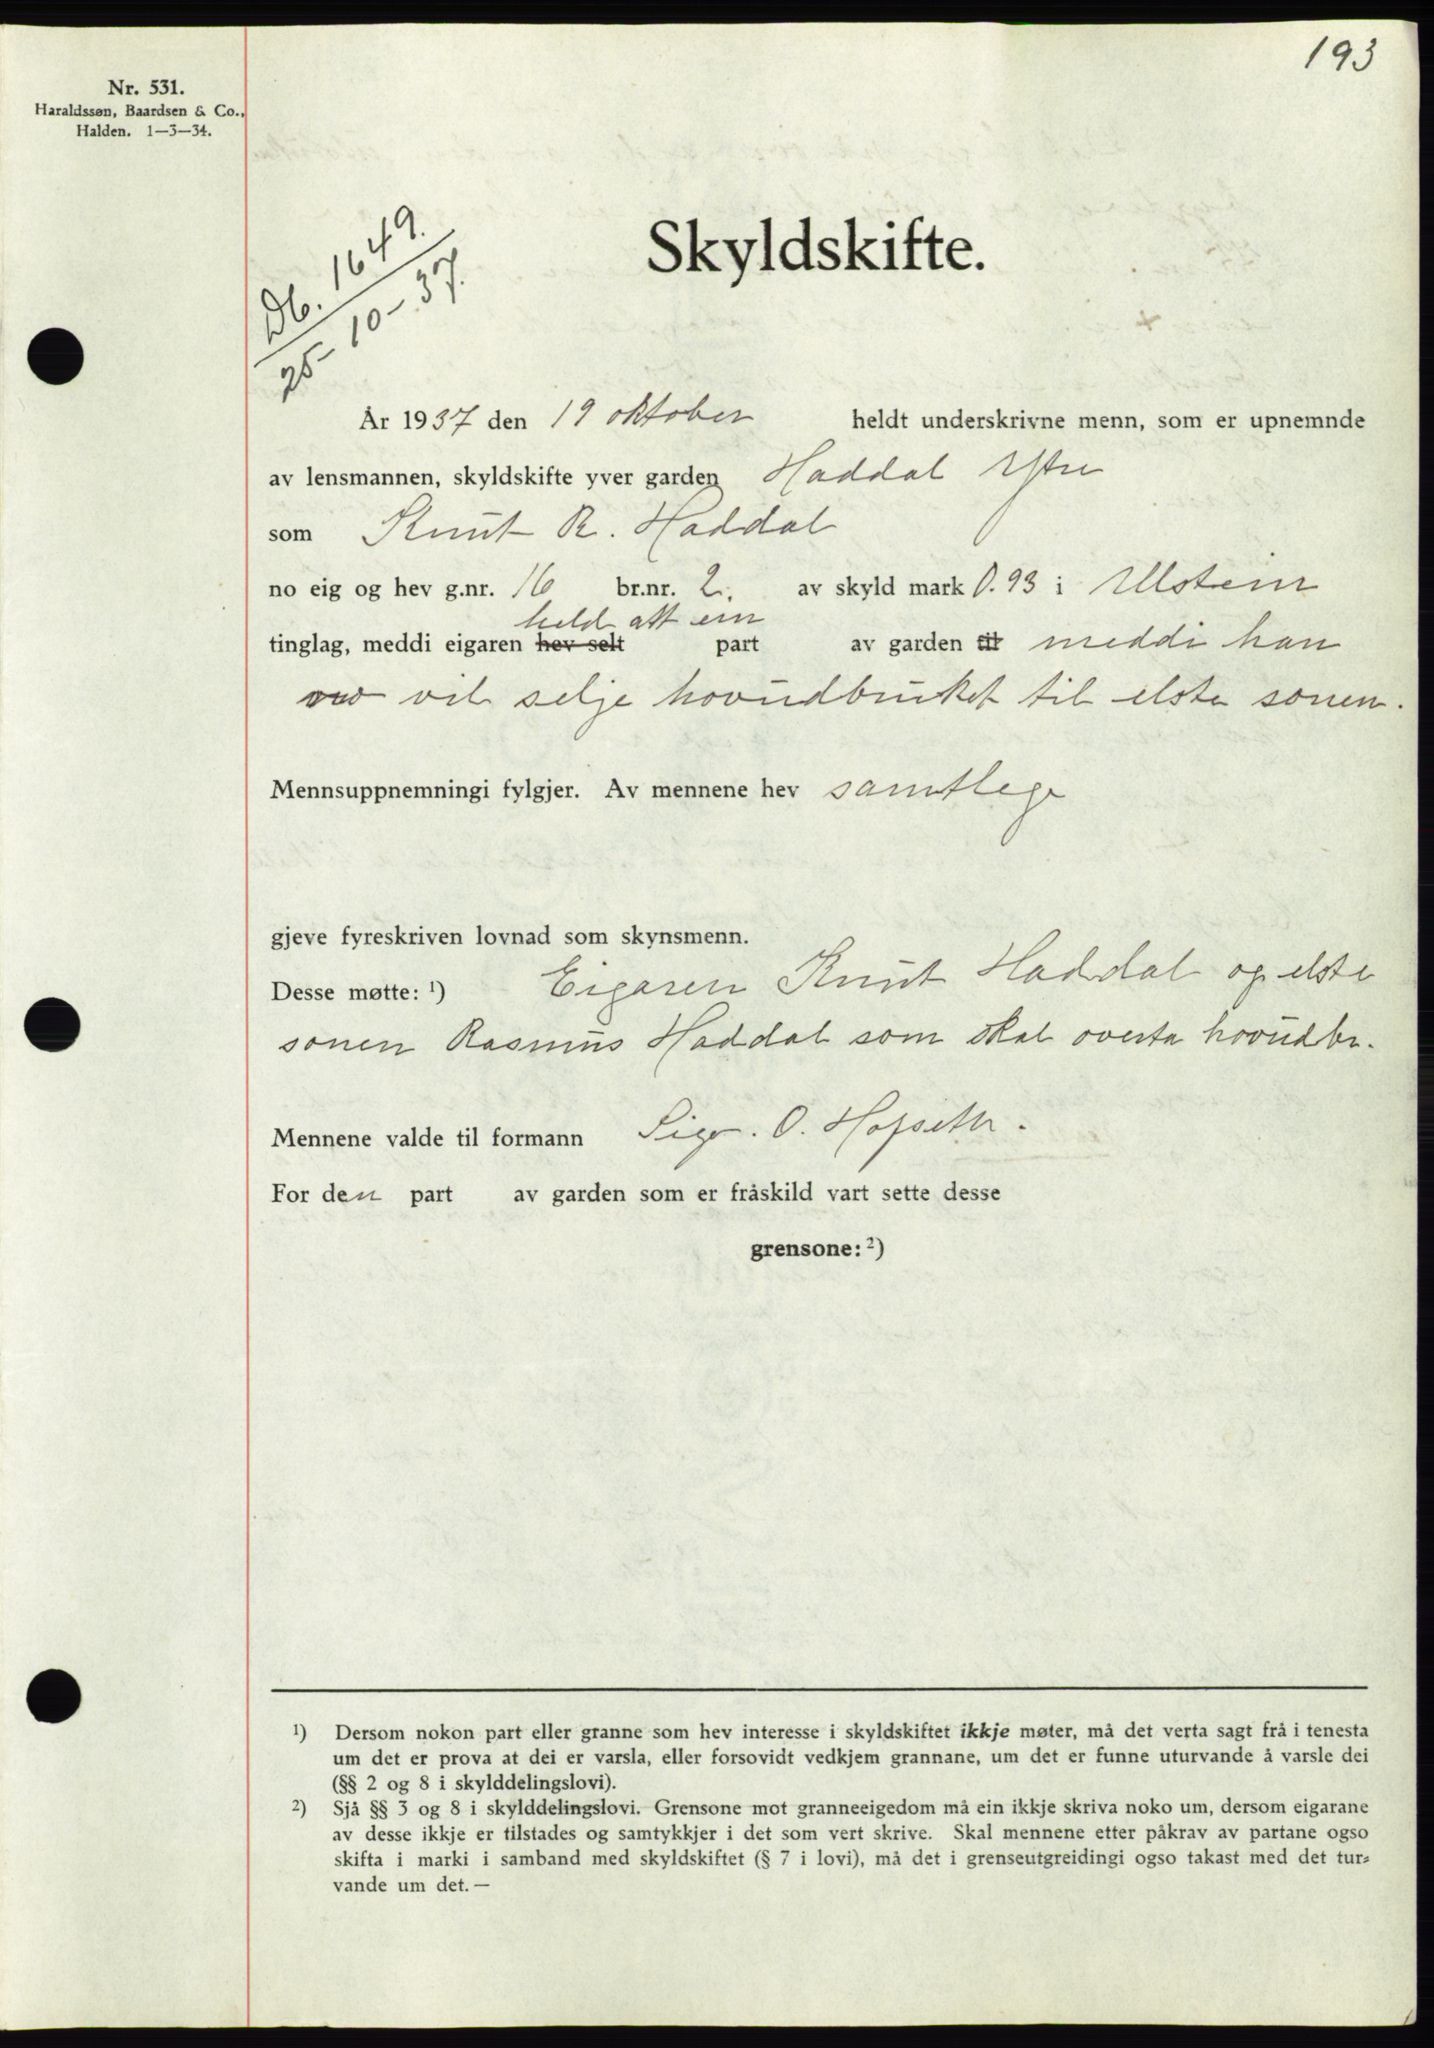 193
Nr. 531.
Haraldssøn, Baardsen & Co.,
Halden. 1—3—34.
Db. 1649.
25-10-37.
Skyldskifte.
År 1937 den 19 oktober heldt underskrivne menn, som er upnemnde
av lensmannen, skyldskifte yver garden Haddal Ytre
som Knut R. Haddal
no eig og hev g.nr. 16 br.nr. 2. av skyld mark 0.93 i Ulstein
held att ein
tinglag, meddi eigaren hev selt part av garden til meddi han
vil selje hovudbruket til elste sonen.
Mennsuppnemningi fylgjer. Av mennene hev samtlege
gjeve fyreskriven lovnad som skynsmenn.
Desse møtte: ¹) Eigaren Knut Haddal og elste
sonen Rasmus Haddal som skal overta hovudbr.
Mennene valde til formann Sigv. O. Hofseth.
For den part av garden som er fråskild vart sette desse
grensone: ²)
¹) Dersom nokon part eller granne som hev interesse i skyldskiftet ikkje møter, må det verta sagt frå i tenesta
um det er prova at dei er varsla, eller forsovidt vedkjem grannane, um det er funne uturvande å varsle dei
(§§ 2 og 8 i skylddelingslovi).
²) Sjå §§ 3 og 8 i skylddelingslovi. Grensone mot granneeigedom må ein ikkje skriva noko um, dersom eigarane
av desse ikkje er tilstades og samtykkjer i det som vert skrive. Skal mennene etter påkrav av partane ogso
skifta i marki i samband med skyldskiftet (§ 7 i lovi), må det i grenseutgreidingi ogso takast med det tur=
vande um det. —